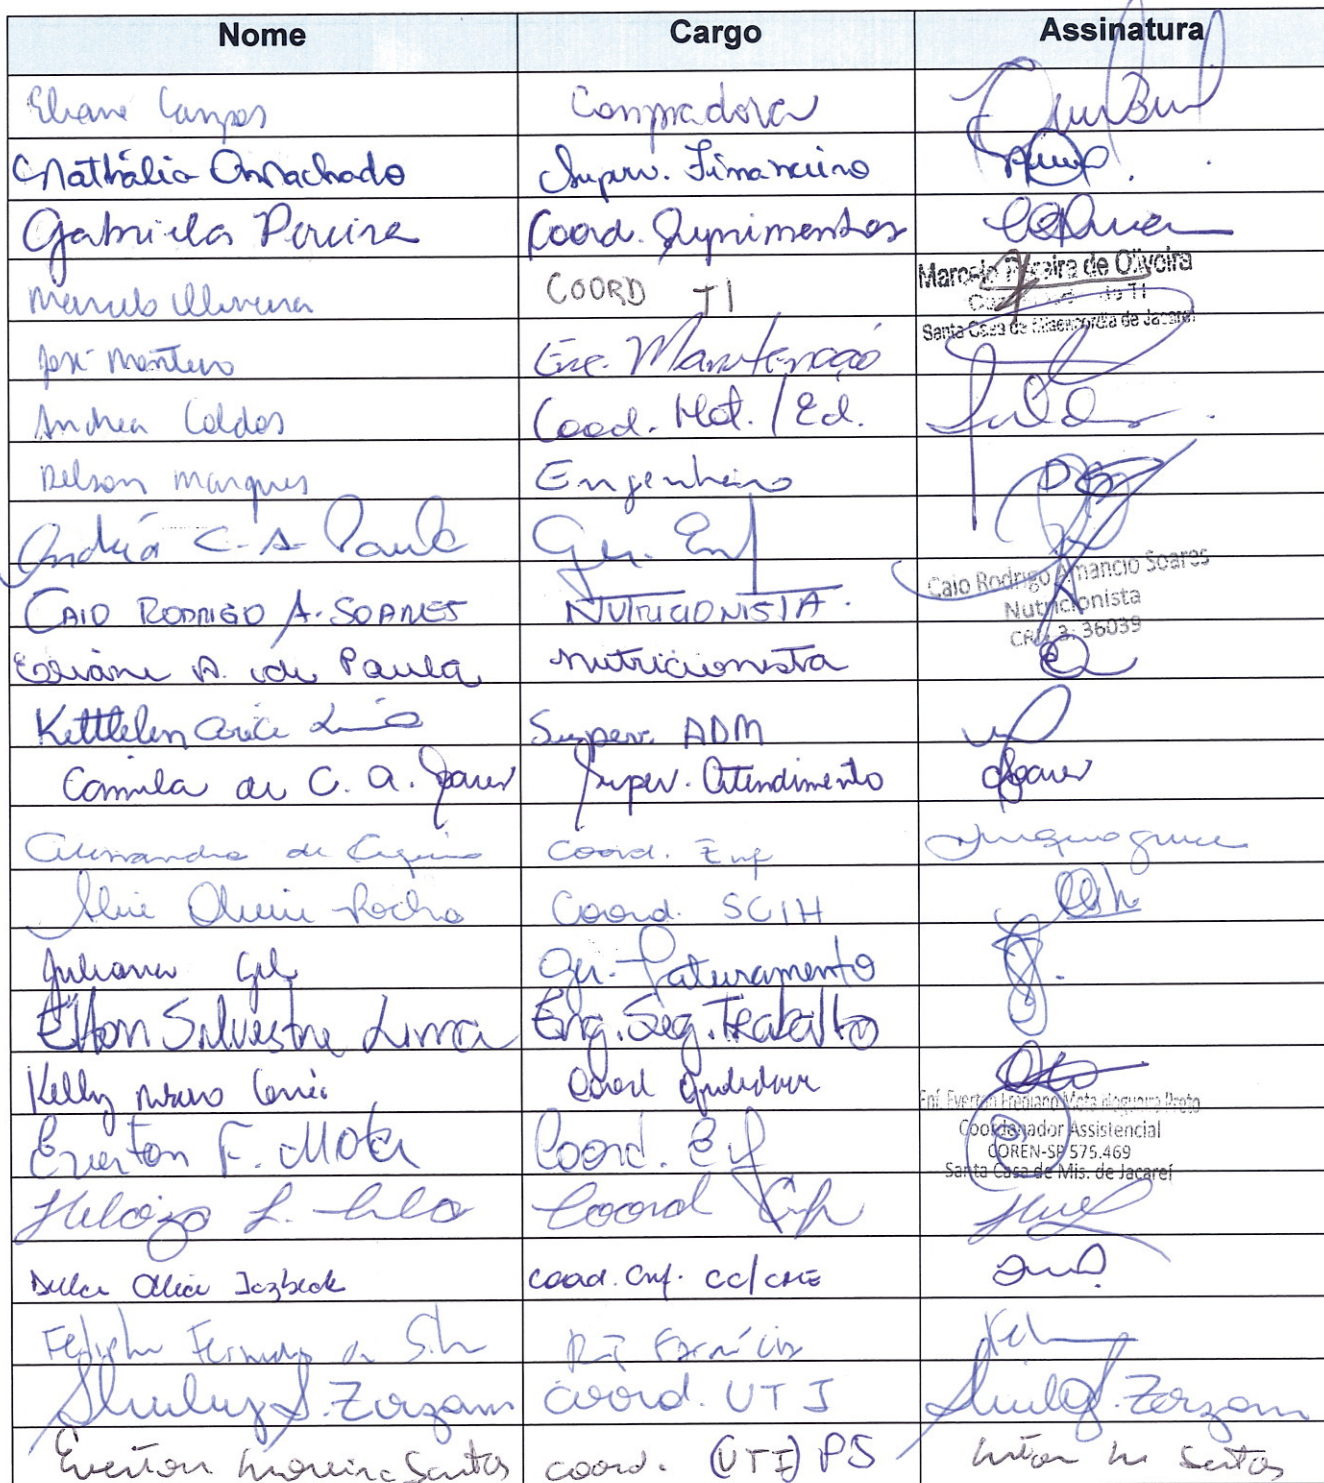 Nome Cargo Assinatura
Eliane Campos Compradora
Nathália Machado Superv. Financeiro
Gabriela Pereira Coord. Suprimentos
Marcelo Oliveira COORD TI Marcelo Pereira de Oliveira
Santa Casa de Misericórdia de Jacareí
José Monteiro Enc. Manutenção
Andrea Caldas Coord. Hot. / Ed.
Delson Marques Engenheiro
Andréa C. A. Paula Ger. Enf
CAIO RODRIGO A. SOARES NUTRICIONISTA. Caio Rodrigo Amancio Soares
Nutricionista
CRN 3: 36039
A. de Paula nutricionista
Superv. ADM
Camila de C. A. Soares Super. Atendimento
de Coord. Enf
Rocha Coord. SCIH
Juliana Gil Ger. Faturamento
Elton Silvestre Lima Eng. Seg. Trabalho
Kelly Coord
Everton F. Mota Coord. Enf Enf. Everton Mota Nogueira
Coordenador Assistencial
COREN-SP 575.469
Santa Casa de Mis. de Jacareí
Coord Enf
Dulce Jazbeck Coord. Enf. CC/CME
RT Farmácia
Shirley S. Zorzam Coord. UTI Shirley S. Zorzam
Everton Moreira Santos coord. (UTI) PS Everton M Santos